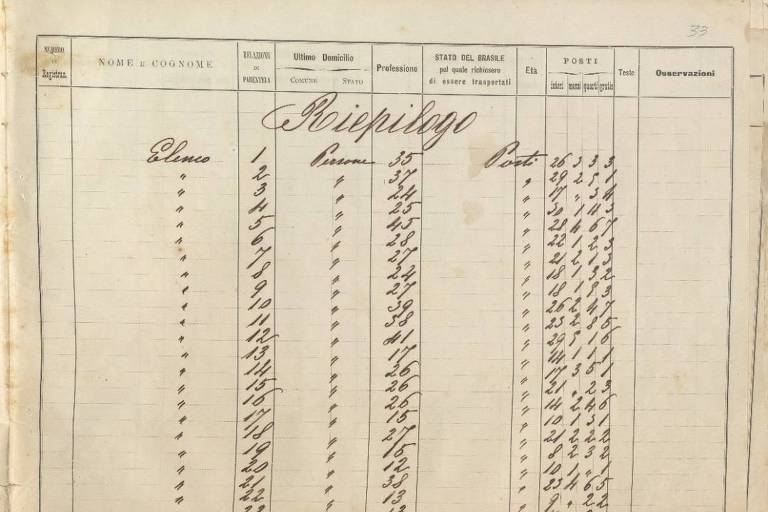 33
NUMERO DI Registraz.	NOME E COGNOME	RELAZIONE DI PARENTELA	Ultimo Domicilio	COMUNE	STATO	Professione	STATO DEL BRASILE pel quale richiesero di essere trasportati	Età	POSTI	interi	mezzi	quarti	gratis	Teste	Osservazioni
Riepilogo
Elenco 1 Persone 35 Posti 26 3 3 3
" 2 " 37 " 29 2 5 1
" 3 " 24 " 17 " 3 4
" 4 " 25 "
" 5 " 45 " 28 4 6 7
" 6 " 28 " 22 1 2 3
" 7 " 27 " 21 2 1 3
" 8 " 24 " 18 1 3 2
" 9 " 27 " 18 1 5 3
" 10 " 39 " 26 2 4 7
" 11 " 38 " 23 2 8 5
" 12 " 41 " 29 5 1 6
" 13 " 17 " 14 1 1 1
" 14 " 26 " 17 3 5 1
" 15 " 26 " 21 " 2 3
" 16 " 26 " 14 2 4 6
" 17 " 15 " 10 1 3 1
" 18 " 27 " 21 2 2 2
" 19 " 15 " 8 2 3 2
" 20 " 12 " 10 1 " 1
" 21 " 38 " 23 4 6 5
" 22 " 13 " 9 " 2 2